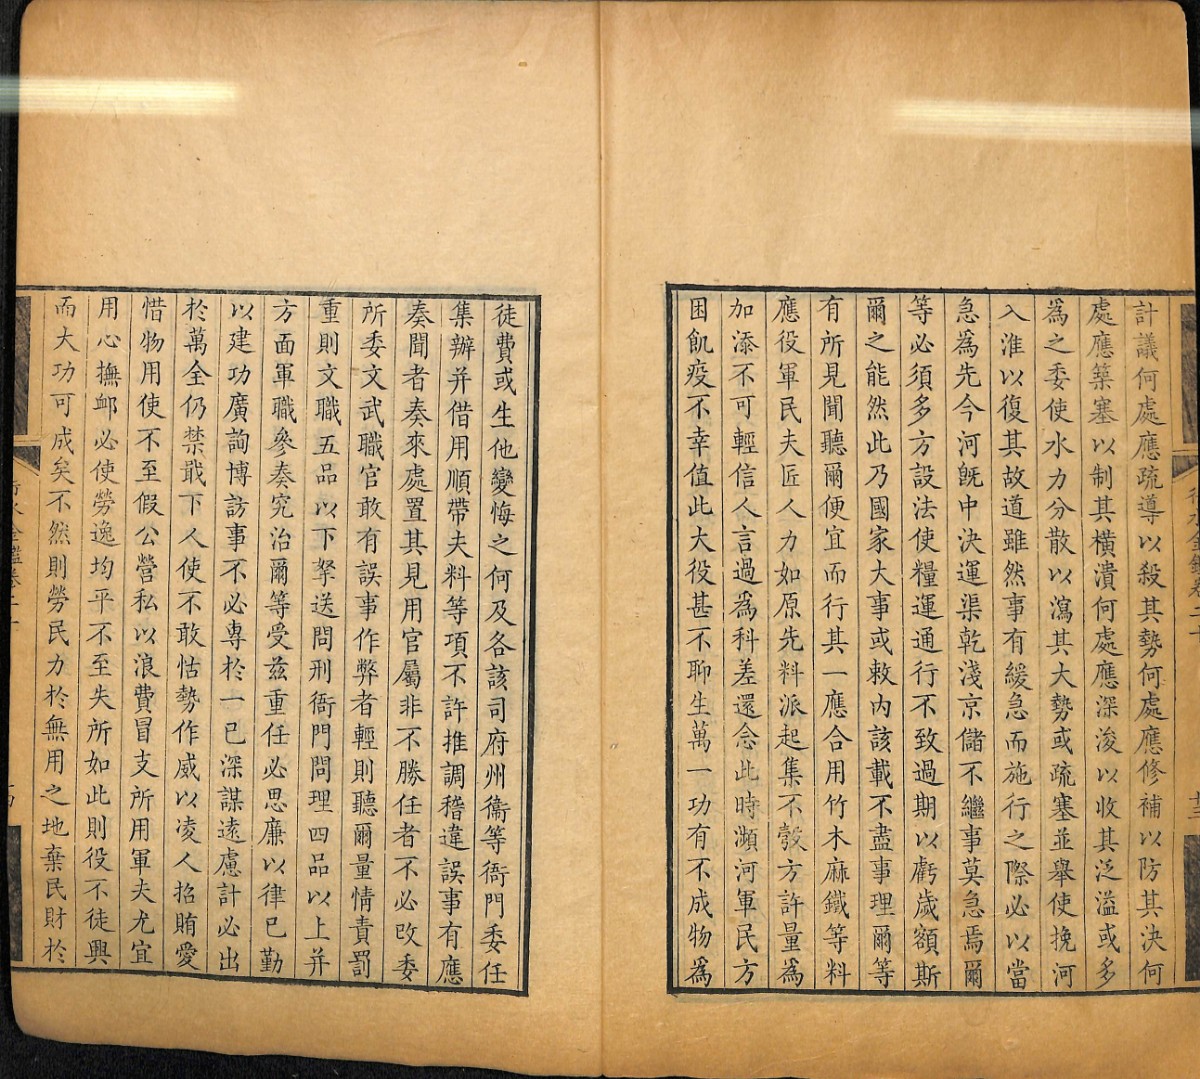 計議何處應疏導以殺其勢何處應修補以防其決何
處應築塞以制其橫潰何處應深浚以收其泛溢或多
爲之委使水力分散以瀉其大勢或疏塞並舉使挽河
入淮以復其故道雖然事有緩急而施行之際必以當
急爲先今河旣中決運渠乾淺京儲不繼事莫急焉爾
等必須多方設法使糧運通行不致過期以虧歲額斯
爾之能然此乃國家大事或敕內該載不盡事理爾等
有所見聞聽爾便宜而行其一應合用竹木麻鐵等料
應役軍民夫匠人力如原先料派起集不彀方許量爲
加添不可輕信人言過爲科差還念此時瀕河軍民方
困飢疫不幸值此大役甚不聊生萬一功有不成物爲
徒費或生他變悔之何及各該司府州衞等衙門委任
集辦并借用順帶夫料等項不許推調稽違誤事有應
奏聞者奏來處置其見用官屬非不勝任者不必改委
所委文武職官敢有誤事作弊者輕則聽爾量情責罰
重則文職五品以下拏送問刑衙門問理四品以上并
方面軍職參奏究治爾等受兹重任必思廉以律已勤
以建功廣詢博訪事不必專於一已深謀遠慮計必出
於萬全仍禁戢下人使不敢怙勢作威以凌人招賄愛
惜物用使不至假公營私以浪費冒支所用軍夫尤宜
用心撫衈必使勞逸均平不至失所如此則役不徒興
而大功可成矣不然則勞民力於無用之地棄民財於